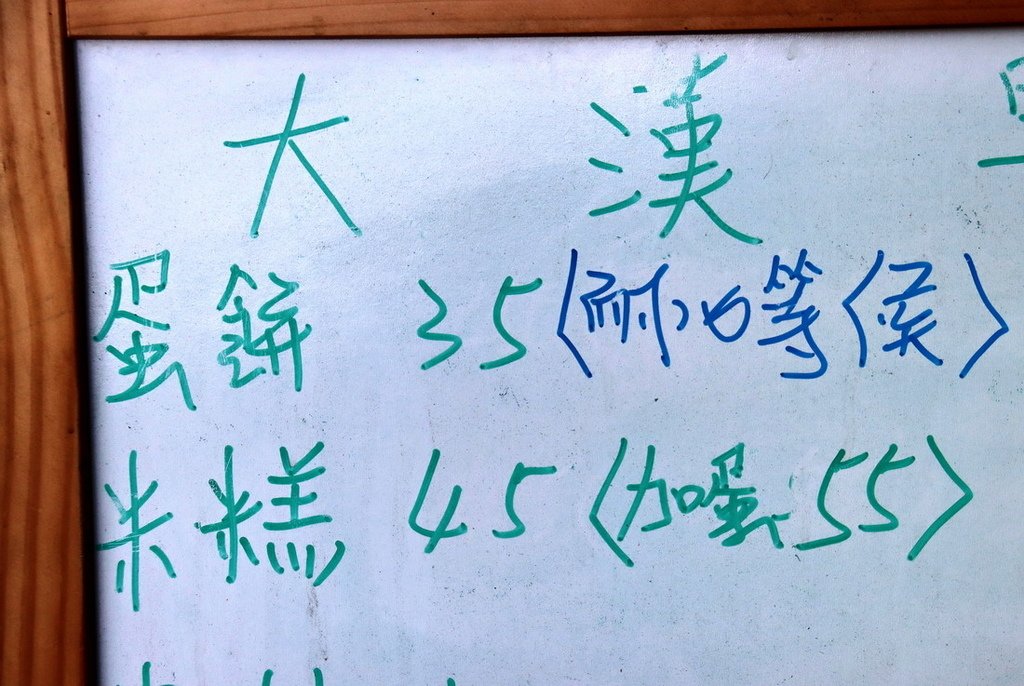 大漢
蛋餅 35〈耐心等候〉
米糕 45〈加蛋 55〉